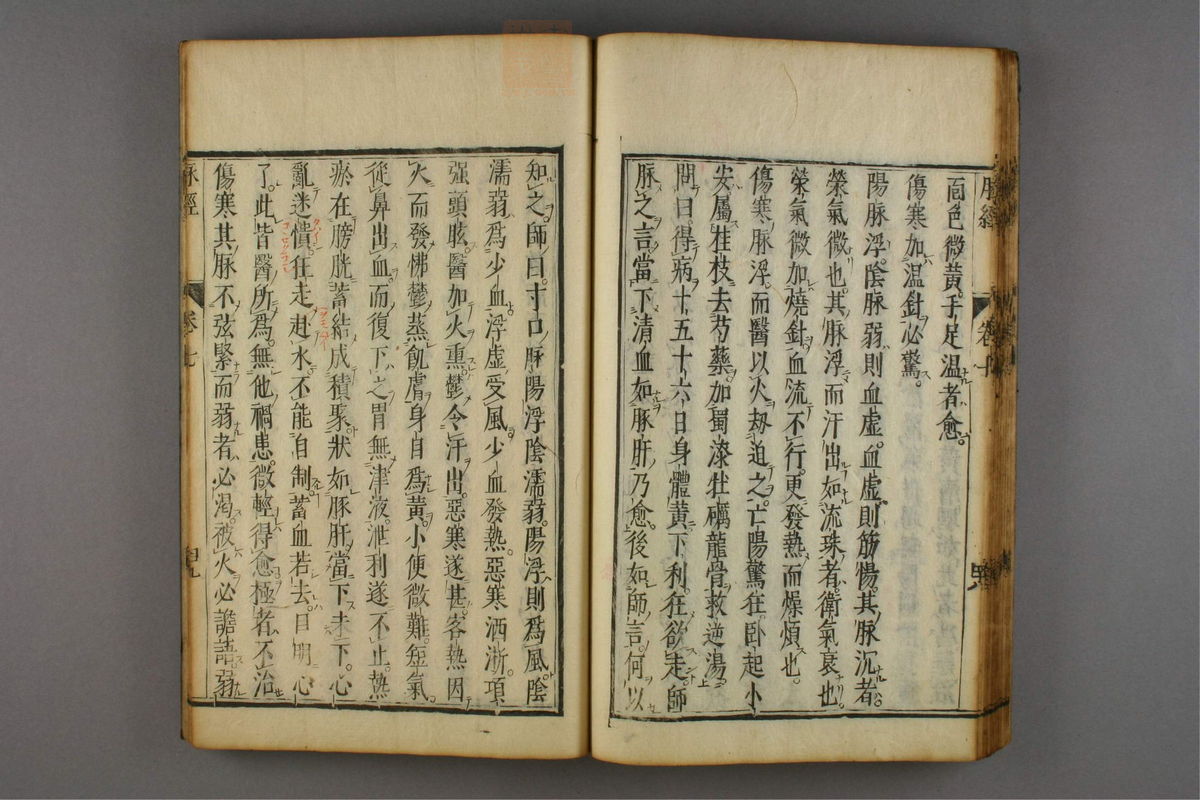 脉經 卷七
面色微黄。手足温者愈。
傷寒加温針必驚。
陽脉浮。陰脉弱。則血虛。血虛則筋惕。其脉沉者。
榮氣微也。其脉浮而汗出如流珠者。衛氣衰也。
榮氣微加燒針。血流不行。更發熱而燥煩也。
傷寒脉浮。而醫以火刼迫之。亡陽驚狂。卧起不
安。屬桂枝去芍藥加蜀漆牡礪龍骨救逆湯。
問曰。得病十五十六日身體黄。下利。狂欲走。師
脉之言當下清血如豚肝乃愈。後如師言。何以
知之。師曰。寸口脉陽浮陰濡弱。陽浮則爲風。陰
濡弱爲少血。浮虛受風。少血發熱。惡寒洒淅。項
强頭眩。醫加火熏。鬱令汗出。惡寒遂甚。客熱因
火而發。怫鬱蒸飢膚。身自爲黄。小便微難。短氣。
從鼻出血。而復下之。胃無津液。泄利遂不止。熱
瘀在膀胱。蓄結成積聚。狀如豚肝。當下未下。心
亂迷憒。狂走赴水。不能自制。蓄血若去。目明心
了。此皆醫所爲。無他禍患。微輕得愈。極者不治
傷寒其脉不弦緊而弱者必渴。被火必譫語。弱
脉經 卷七 四九